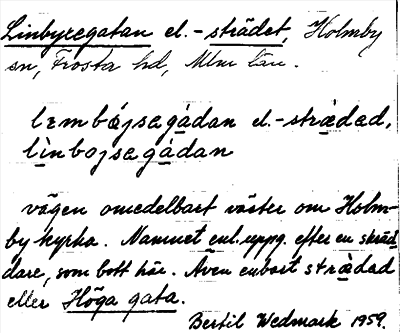 Linbyregatan el. -strädet, Holmby
sn, Frosta hd, Mlm län.
lɪmbǿjsagàdan el. -strädad,
lìnbojsagàdan
vägen omedelbart väster om Holm-
by kyrka. Namnet enl. uppg. efter en skräd-
dare, som bott här. Även enbart strädad
eller Höga gata.
Bertil Wedmark 1959.